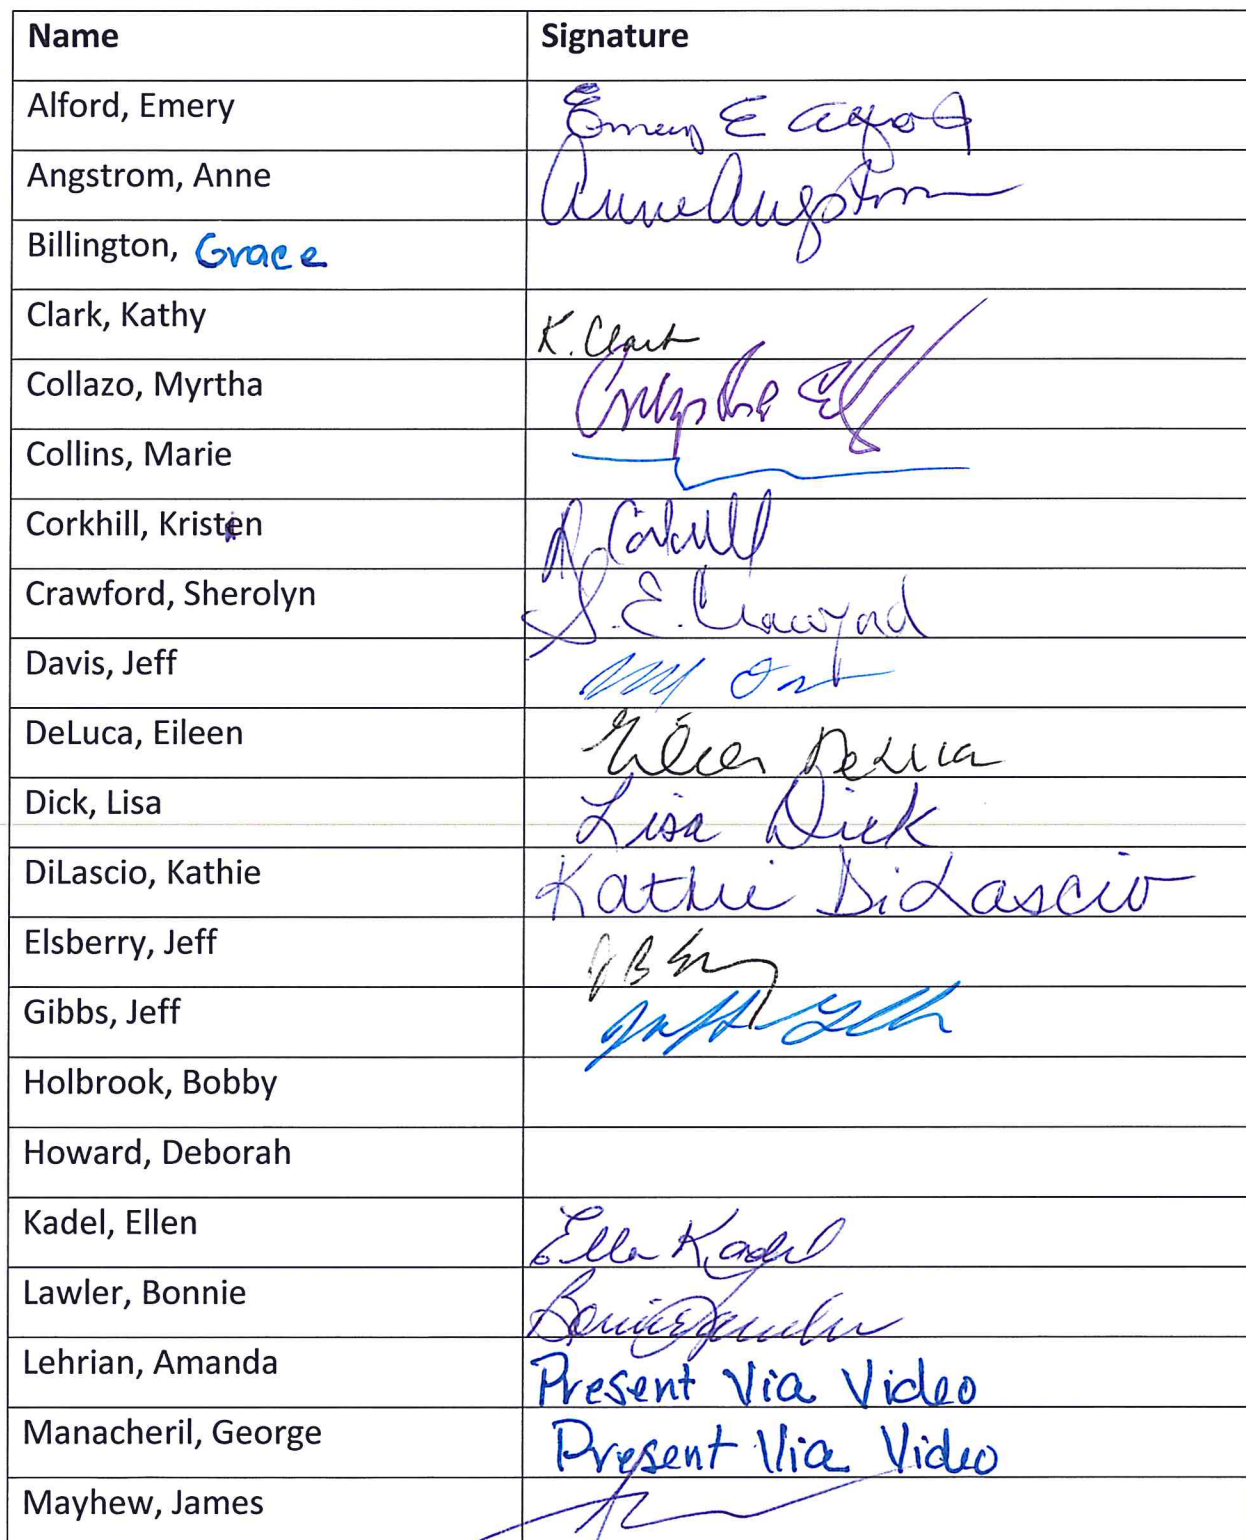 Name Signature
Alford, Emery Emery E Alford
Angstrom, Anne Anne Angstrom
Billington, Grace
Clark, Kathy K. Clark
Collazo, Myrtha
Collins, Marie
Corkhill, Kristen K Corkhill
Crawford, Sherolyn S. E. Crawford
Davis, Jeff
DeLuca, Eileen Eileen DeLuca
Dick, Lisa Lisa Dick
DiLascio, Kathie Kathie DiLascio
Elsberry, Jeff
Gibbs, Jeff Jeff Gibbs
Holbrook, Bobby
Howard, Deborah
Kadel, Ellen Ellen Kadel
Lawler, Bonnie Bonnie Lawler
Lehrian, Amanda Present Via Video
Manacheril, George Present Via Video
Mayhew, James